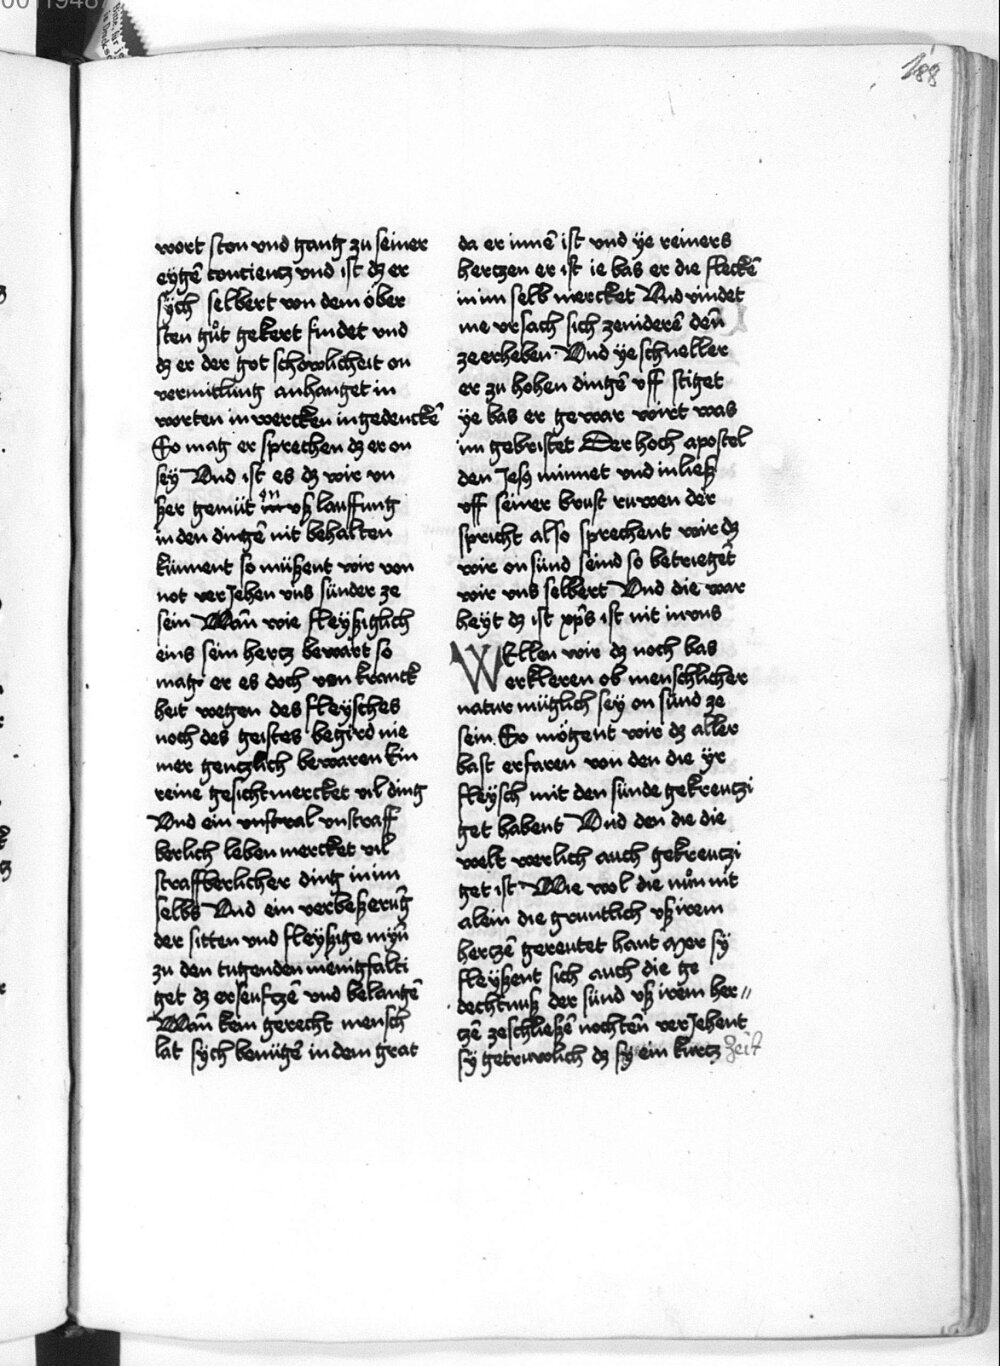 188
wort ston vnd gang zu seiner
eygē concientz vnd ist dz er
sych selbert von dem öber
sten gůt gekert findet vnd
dz er der got schowlicheit on
vermitlung anhanget in
worten in wercken in gedenckē
So mag er sprechen dz er on
sey Vnd ist es dz wir vn
ßer gemüt in vß lauffung
in den dingē nit behalten
kùnnent so müßent wir von
not verJehen vns sünder ze
sein Wañ wie fleyßiglich
eins sein hertz bewart so
mag er es doch von kranck
heit wegen des fleysches
noch des geistes begird nie
mer gentzlich bewaren Ein
reine gesicht mercket vil ding
Vnd ein vnstraff
berlich leben mercket vil
straffberlicher ding in im
selbs Vnd ein verbeßerung
der sitten vnd fleyßige myn̄
zu den tugenden menigfalti
get dz ersenfczē vnd belangē
Wañ kein gerecht mensch
lat sych benügē in dem grat
da er innē ist vnd ye reiners
hertzen er ist ie bas er die fleckē
in im selb mercket Vnd vindet
me vrsach sich zeniderē deñ
ze erheben Vnd ye schneller
er zu hohen dingē vff stiget
ye bas er gewar wirt was
im gebristet Der hoch apostel
den Jesus minnet vnd in ließ
vff seiner brust ruwen der
spricht also sprechent wir dz
wir on sünd seind so betriegēt
wir vns selbert Vnd die war
heyt dz ist xp̄s ist nit in vns
Wellen wir dz noch bas
erkleren ob menschlicher
natur müglich sey on sünd ze
sein So mögent wir dz aller
bast erfaren von den die yr
fleysch mit den sünde gekreutzi
get habent Vnd den die die
welt werlich auch gekreutzi
get ist Wie wol die nůn nit
alein die gruntlich vß irem
hertzē gereutet hant Mer sy
fleyßent sich auch die ge
dechtnuß der sünd vß irem her//
tzē ze schließē nochteñ verJehent
sy getruwlich dz sy ein kurtz zeit